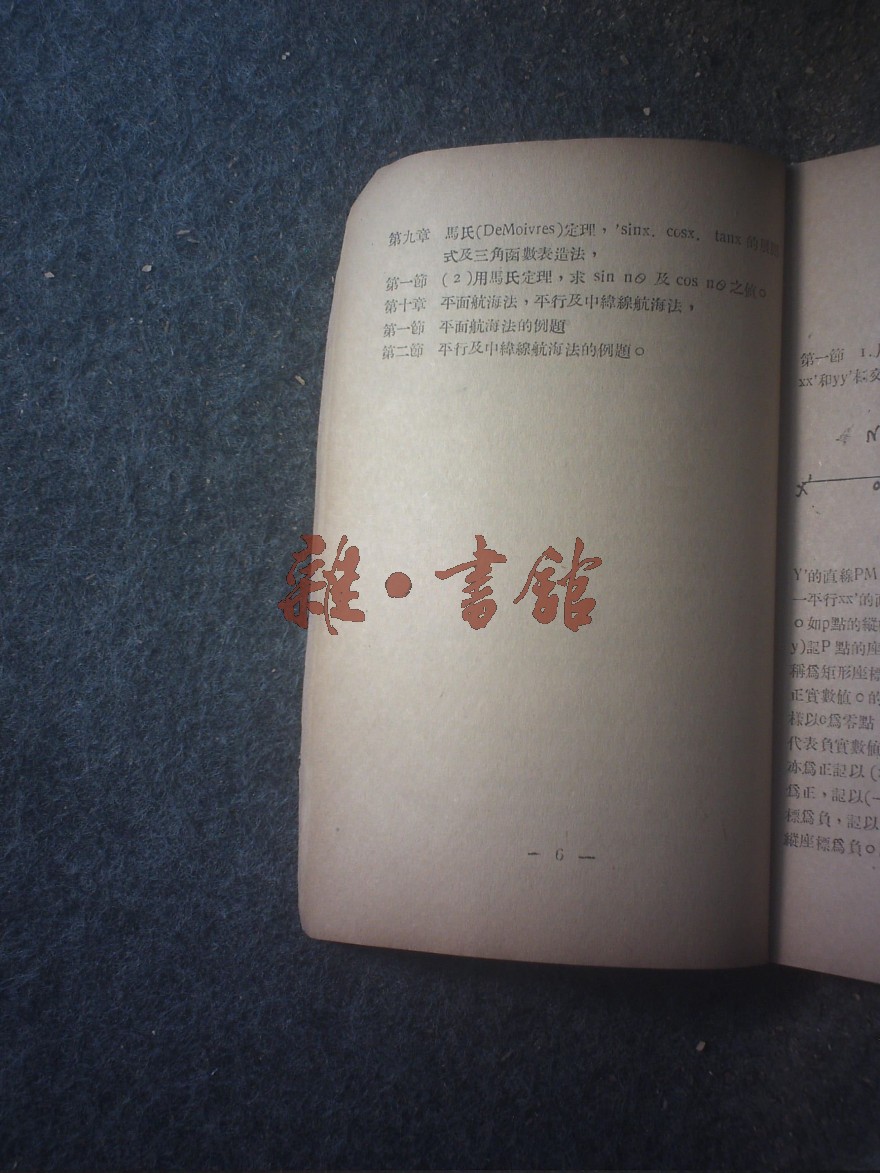 第九章 馬氏(DeMoivres)定理，'sinx. cosx. tanx 的
式及三角函數表造法，
第一節 (2)用馬氏定理，求 sin n⊖ 及 cos n⊖之值。
第十章 平面航海法，平行及中緯線航海法，
第一節 平面航海法的例題
第二節 平行及中緯線航海法的例題。
雜·書館
— 6 —
第一節 1.
xx'和yy'
x'
Y'的直線PM
一平行xx'的
。如p點的縱
y)記P點的座
稱爲矩形座標
正實數值。的
樣以o爲零點
代表負實數值
亦爲正記以(
爲正，記以(一
標爲負，記以
縱座標爲負。